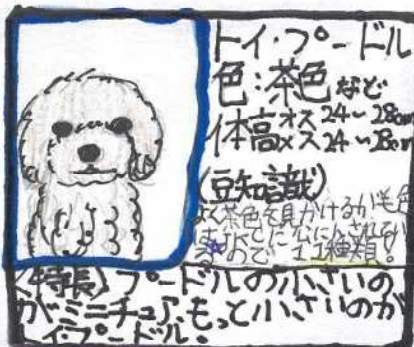 トイ・プードル
色:茶色など
体高オス24~28cm
メス24~28cm
(豆知識)
よく茶色を見かけるが毛色
は
種類!
(特長)プードルの小さいの
がミニチュア、もっと小さいのが
トイプードル。